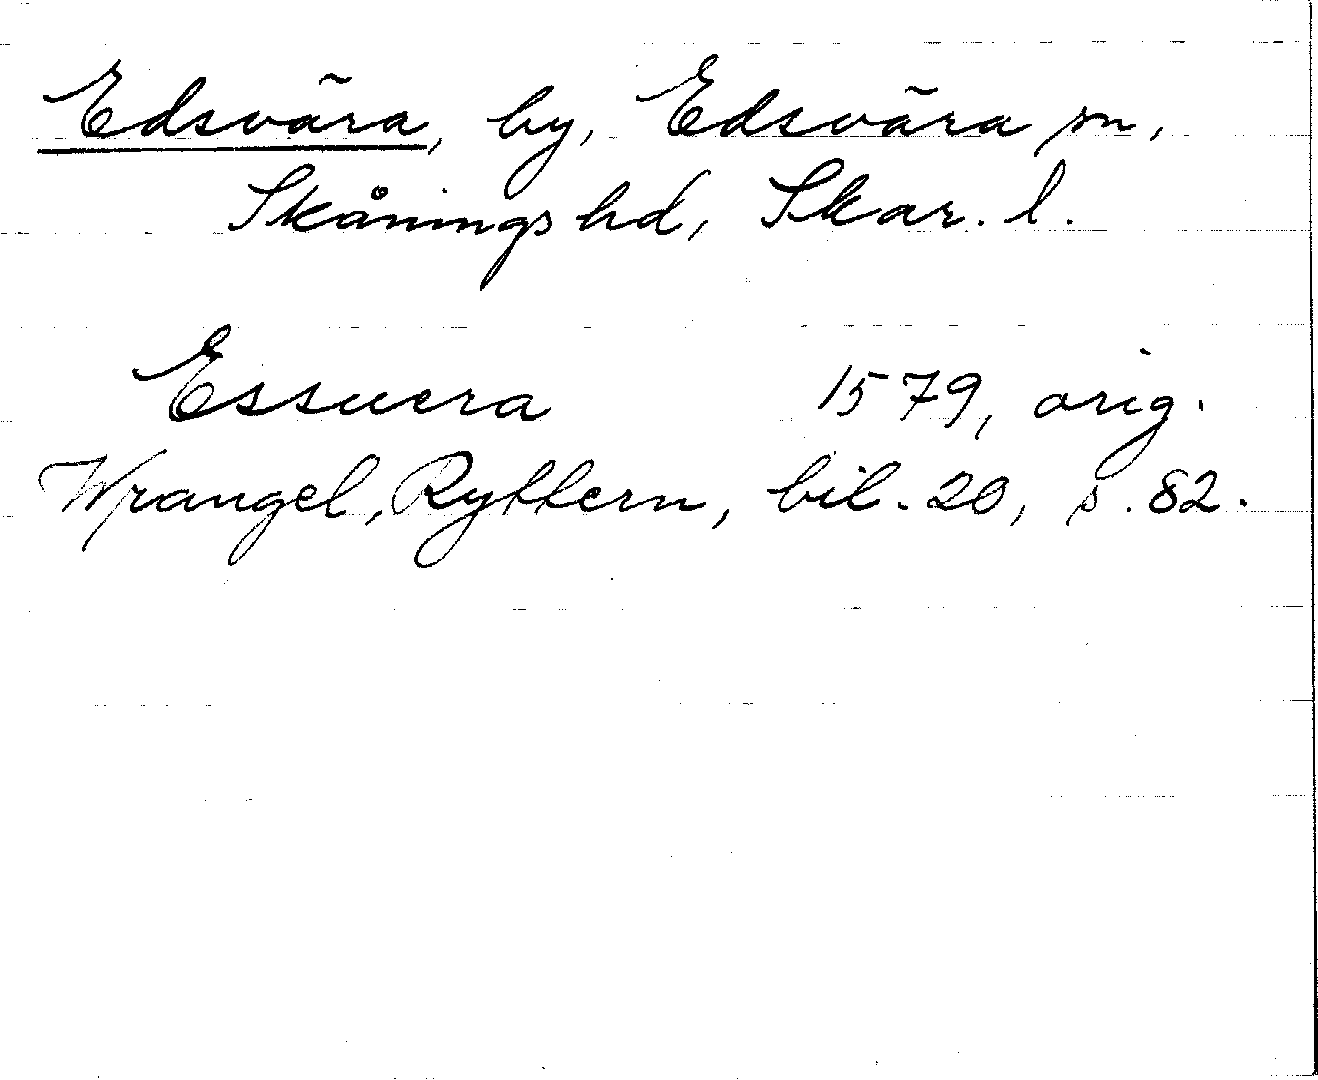 Edsvära, by, Edsvära sn,
Skånings hd, Skar. l.
Essuera 1579, orig.
Wrangel, Ryttern, bil. 20, s. 82.